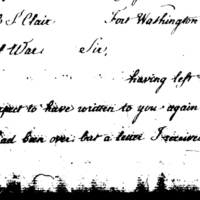 St Clair Fort Washington
War Sir,
having left
expect to have written to you again
had been over but a letter I received